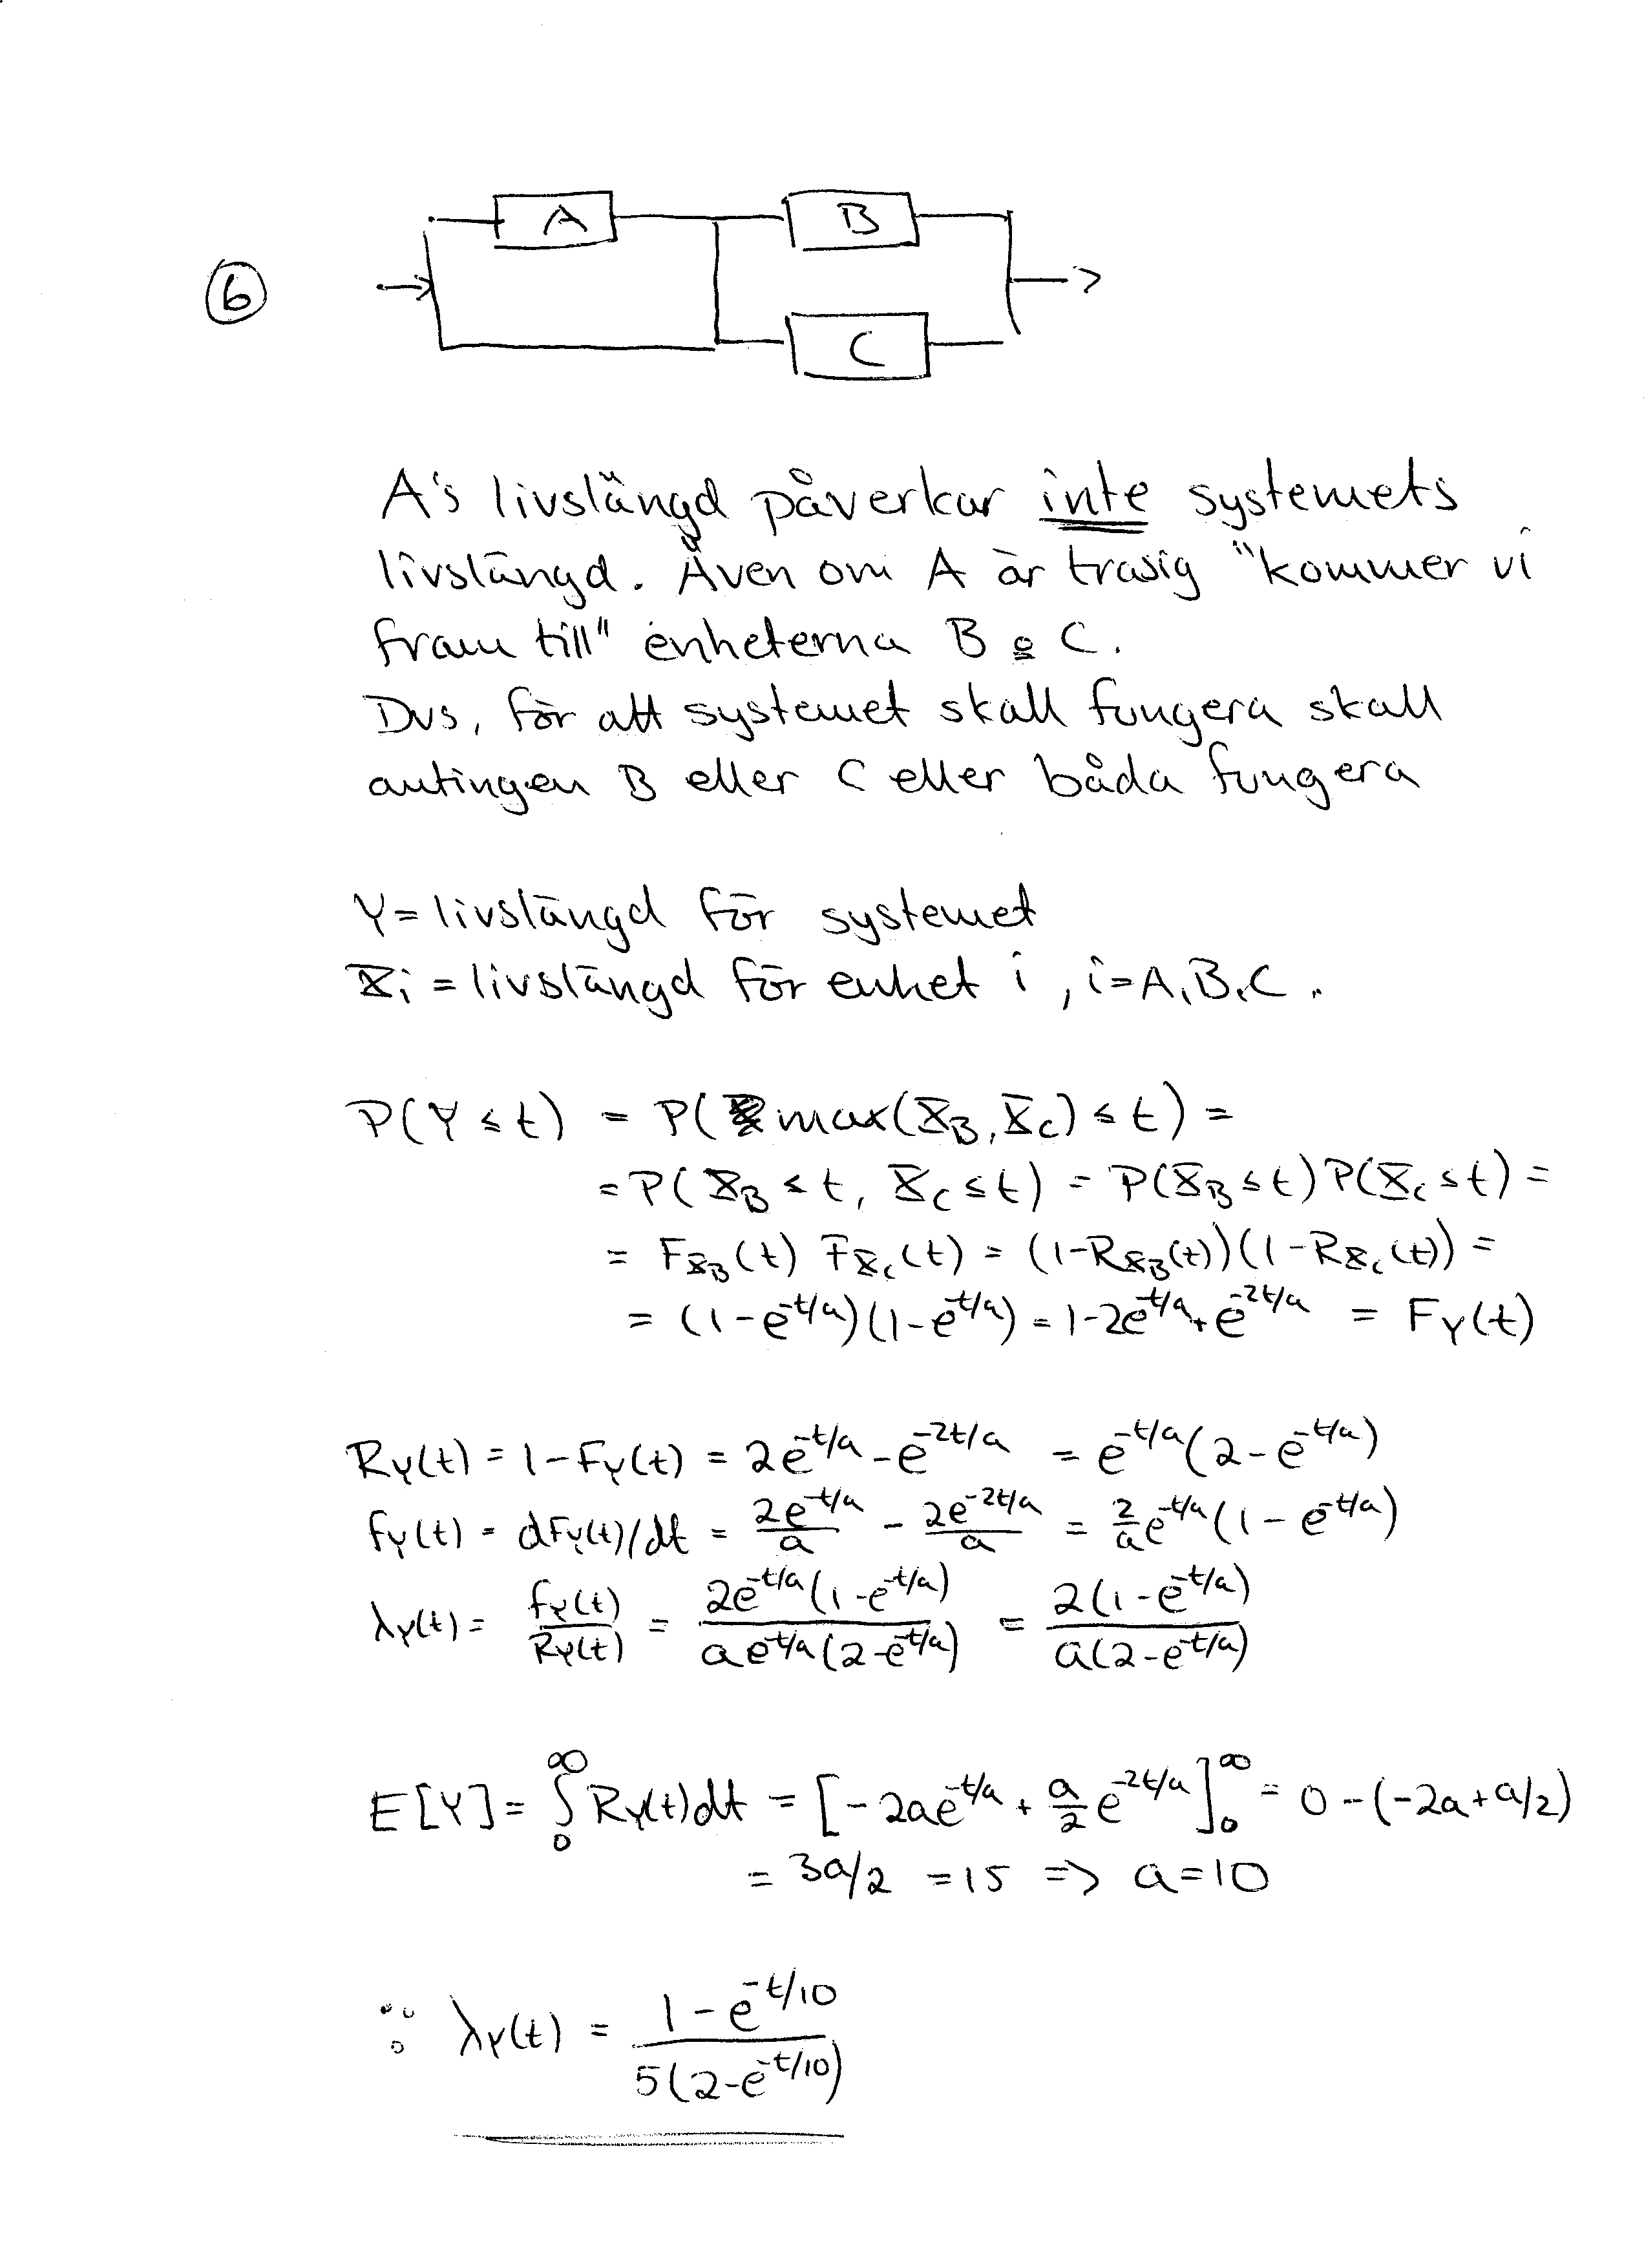 A
B
6
C
A's livslängd påverkar inte systemets
livslängd. Även om A är trasig "kommer vi
fram till" enheterna B & C.
Dvs, för att systemet skall fungera skall
antingen B eller C eller båda fungera
Y = livslängd för systemet
Xi = livslängd för enhet i, i=A,B,C.
P(Y ≤ t) = P(max(X_B, X_C) ≤ t) =
= P(X_B ≤ t, X_C ≤ t) = P(X_B ≤ t) P(X_C ≤ t) =
= F_{X_B}(t) F_{X_C}(t) = (1-R_{X_B}(t))(1-R_{X_C}(t)) =
= (1-e^{-t/a})(1-e^{-t/a}) = 1-2e^{-t/a}+e^{-2t/a} = F_Y(t)
R_Y(t) = 1-F_Y(t) = 2e^{-t/a}-e^{-2t/a} = e^{-t/a}(2-e^{-t/a})
f_Y(t) = dF_Y(t)/dt = 2e^{-t/a}/a - 2e^{-2t/a}/a = 2/a e^{-t/a}(1-e^{-t/a})
λ_Y(t) = f_Y(t)/R_Y(t) = 2e^{-t/a}(1-e^{-t/a})/ae^{-t/a}(2-e^{-t/a}) = 2(1-e^{-t/a})/a(2-e^{-t/a})
E[Y] = ∫_0^∞ R_Y(t)dt = [-2ae^{-t/a} + a/2 e^{-2t/a}]_0^∞ = 0-(-2a+a/2)
= 3a/2 = 15 => a=10
∵ λ_Y(t) = 1-e^{-t/10}/5(2-e^{-t/10})